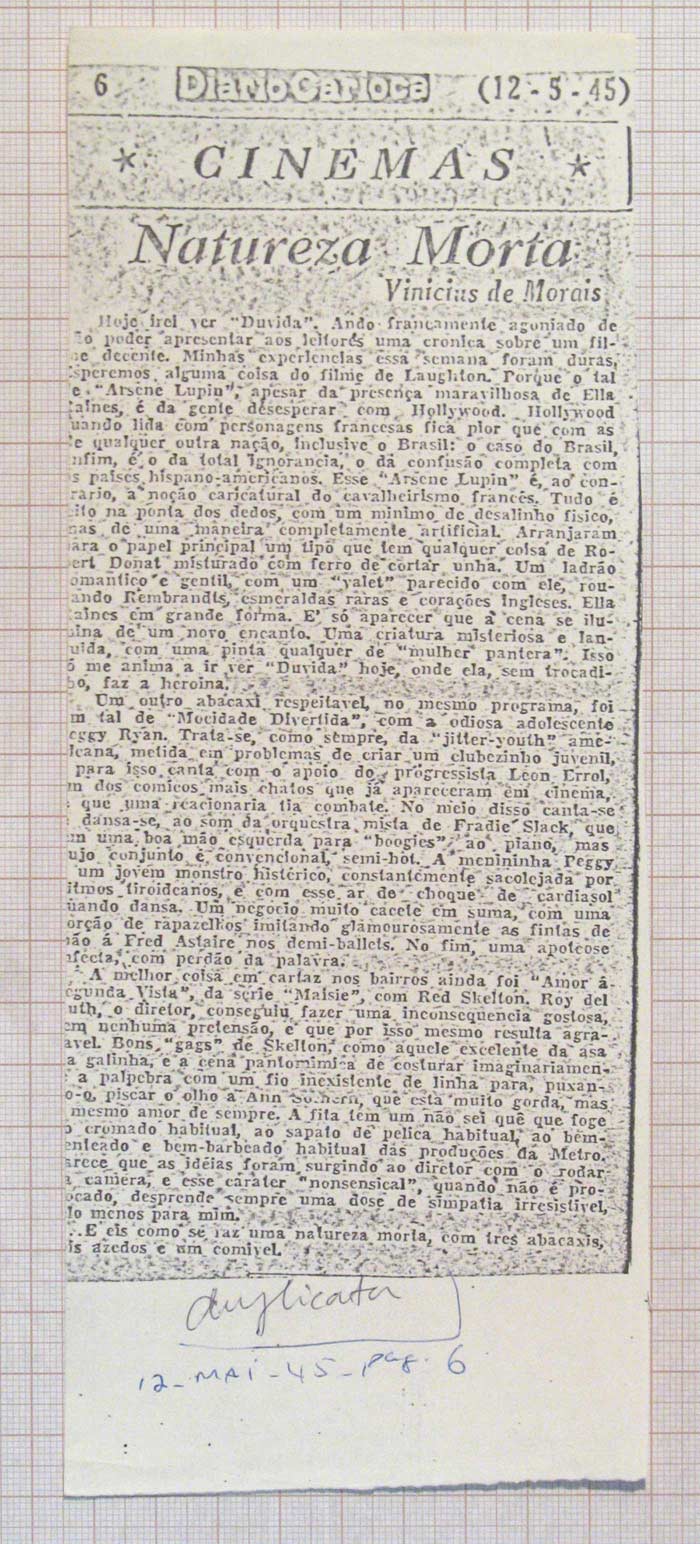 6 Diario Carioca (12-5-45)
* CINEMAS *
Natureza Morta
Vinicius de Morais
Hoje irei ver "Duvida". Ando francamente agoniado de
ão poder apresentar aos leitores uma cronica sobre um fil-
e decente. Minhas experiencias essa semana foram duras,
speremos alguma coisa do filme de Laughton. Porque o tal
e "Arsene Lupin", apesar da presença maravilhosa de Ella
aines, é da gente desesperar com Hollywood. Hollywood
uando lida com personagens francesas fica pior que com as
e qualquer outra nação, inclusive o Brasil: o caso do Brasil,
nfim, é o da total ignorancia, o da confusão completa com
s paises hispano-americanos. Esse "Arsene Lupin" é, ao con-
rario, a noção caricatural do cavalheirismo francês. Tudo é
ito na ponta dos dedos, com um minimo de desalinho fisico,
nas de uma maneira completamente artificial. Arranjaram
ara o papel principal um tipo que tem qualquer coisa de Ro-
ert Donat misturado com ferro de cortar unha. Um ladrão
omantico e gentil, com um "valet" parecido com ele, rou-
ando Rembrandts, esmeraldas raras e corações ingleses. Ella
aines em grande forma. E' só aparecer que a cena se ilu-
ina de um novo encanto. Uma criatura misteriosa e lan-
uida, com uma pinta qualquer de "mulher pantera". Isso
ó me anima a ir ver "Duvida" hoje, onde ela, sem trocadi-
ho, faz a heroina.
Um outro abacaxi respeitavel, no mesmo programa, foi
m tal de "Mocidade Divertida", com a odiosa adolescente
eggy Ryan. Trata-se, como sempre, da "jitter-youth" ame-
icana, metida em problemas de criar um clubezinho juvenil,
para isso canta com o apoio do progressista Leon Errol,
m dos comicos mais chatos que já apareceram em cinema,
que uma reacionaria tia combate. No meio disso canta-se
dansa-se, ao som da orquestra mista de Fradie Slack, que
m uma boa mão esquerda para "boogies" ao piano, mas
ujo conjunto é convencional, semi-hot. A menininha Peggy
um jovem monstro histérico, constantemente sacolejada por
itmos tiroideanos, e com esse ar de choque de cardiasol
uando dansa. Um negocio muito cacete em suma, com uma
orção de rapazelhos imitando glamourosamente as fintas de
ão á Fred Astaire nos demi-ballets. No fim, uma apoteose
nfecta, com perdão da palavra.
A melhor coisa em cartaz nos bairros ainda foi "Amor á
egunda Vista", da série "Maisie", com Red Skelton. Roy del
uth, o diretor, conseguiu fazer uma inconsequencia gostosa,
em nenhuma pretensão, e que por isso mesmo resulta agra-
avel. Bons "gags" de Skelton, como aquele excelente da asa
a galinha, e a cena pantomimica de costurar imaginariamen-
a palpebra com um fio inexistente de linha para, puxan-
o-o, piscar o olho a Ann Sothern, que está muito gorda, mas
mesmo amor de sempre. A fita tem um não sei quê que foge
o cromado habitual, ao sapato de pelica habitual, ao bem-
enteado e bem-barbeado habitual das produções da Metro.
arece que as idéias foram surgindo ao diretor com o rodar
a camera, e esse caráter "nonsensical", quando não é pro-
ocado, desprende sempre uma dose de simpatia irresistivel,
lo menos para mim.
...E eis como se faz uma natureza morta, com tres abacaxis,
is azedos e um comivel.
duplicata
12-MAI-45-pag. 6